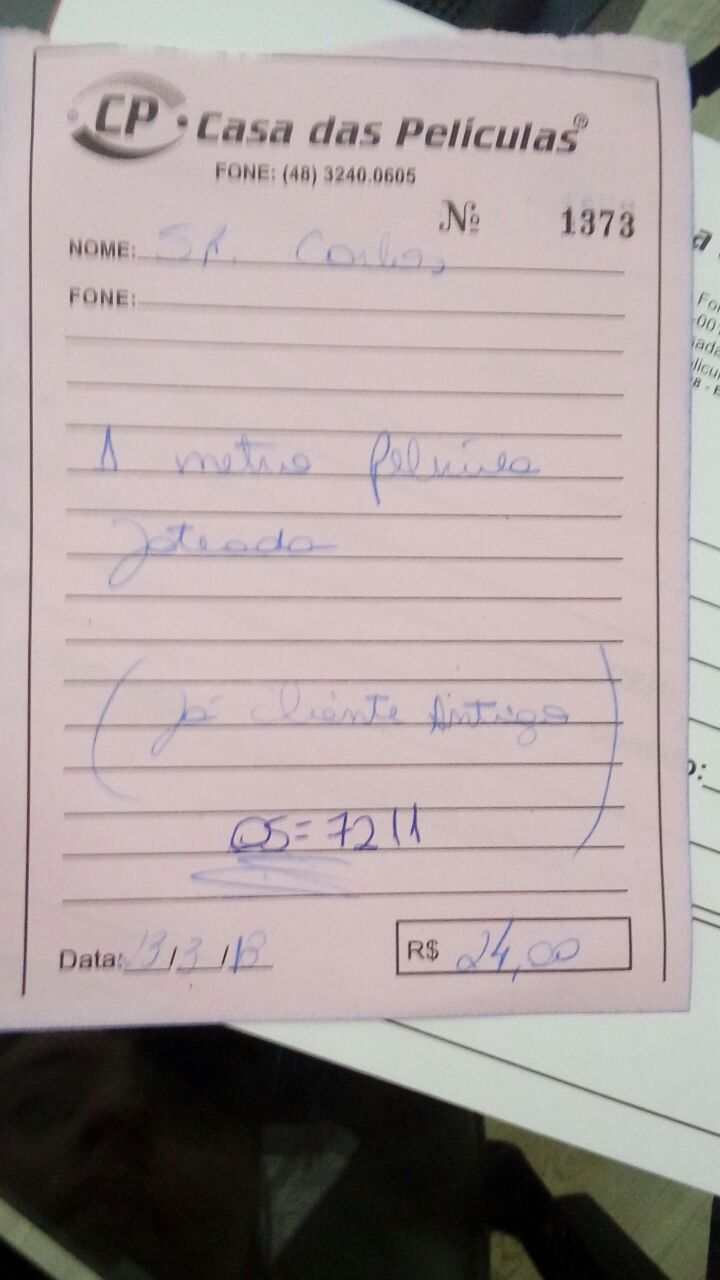 CP Casa das Películas®
FONE: (48) 3240.0605
Nº 1373
NOME: SR. Carlos
FONE:
1 metro Película
Jateada
(já cliente Antigo)
OS=7211
Data: 13/3/18 R$ 24,00